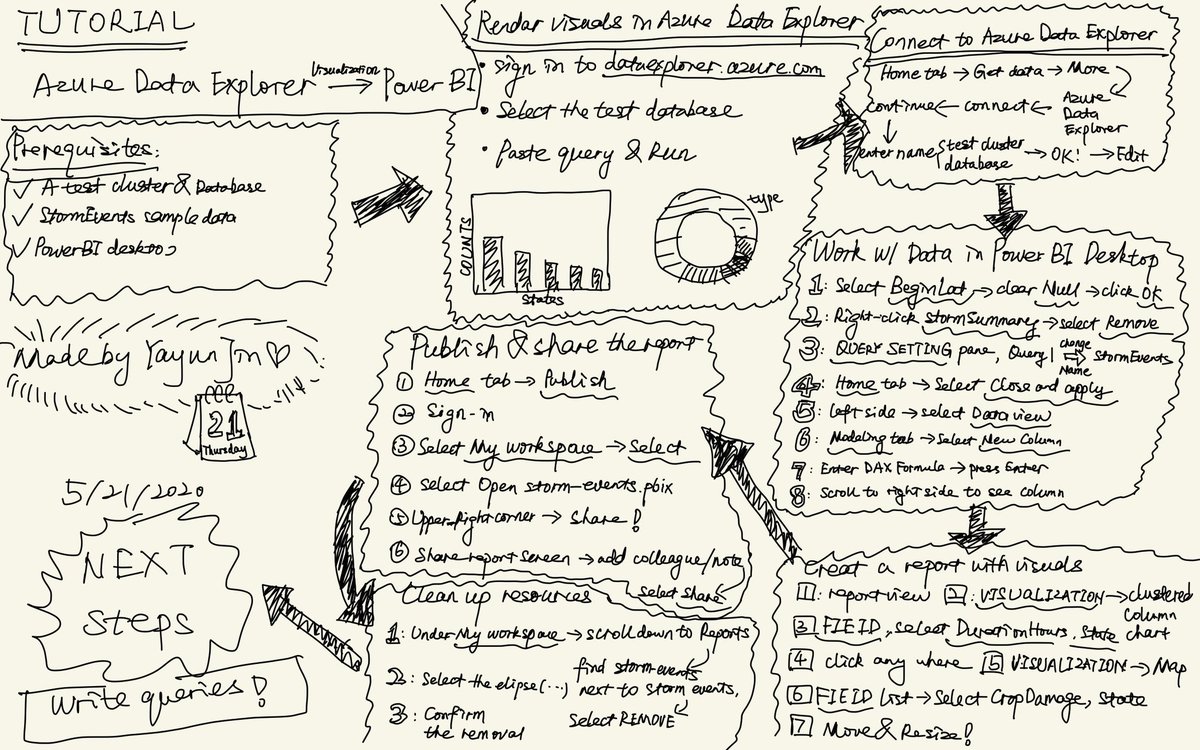 TUTORIAL
Azure Data Explorer Visualization → Power BI
Prerequisites:
✓ A test cluster & Database
✓ StormEvents sample data
✓ PowerBI desktop
Rendar visuals in Azure Data Explorer
• sign in to dataexplorer.azure.com
• Select the test database
• Paste query & Run
COUNTS
States
type
Connect to Azure Data Explorer
Home tab → Get data → More
Continue ← connect ← Azure
Data
Explorer
enter name { test cluster
database → OK! → Edit
Work w/ Data in Power BI Desktop
1: Select BeginLat → clear Null → click OK
2: Right-click StormSummary → select Remove
3: QUERY SETTING pane, Query1 change Name ⇒ StormEvents
4: Home tab → Select Close and apply
5: Left side → select Data view
6: Modeling tab → Select New Column
7: Enter DAX Formula → press Enter
8: Scroll to right side to see column
Creat a report with visuals
1: report view 2: VISUALIZATION → clustered
column
chart
3 FIEID, select DurationHours, State
4 click any where 5 VISUALIZATION → Map
6 FIEID list → Select CropDamage, State
7 Move & Resize!
Publish & share the report
① Home tab → Publish
② Sign-in
③ Select My workspace → Select
④ Select Open storm-events.pbix
⑤ Upper-Right corner → Share!
⑥ Share report screen → add colleague/note
select share
Clean up resources
1: Under My workspace → scroll down to Reports
find storm-events
2: Select the elipse(...) next to storm events,
select REMOVE
3: Confirm
the removal
NEXT
Steps
Write queries!
Made by Yayun Jin ♡
21
Thursday
5/21/2020